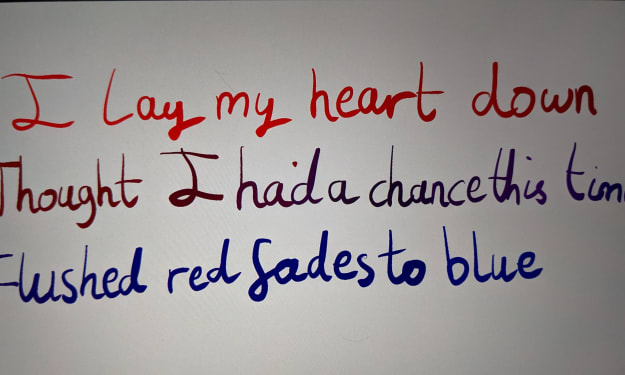 I Lay my heart down
Thought I had a chance this tim
Flushed red fades to blue